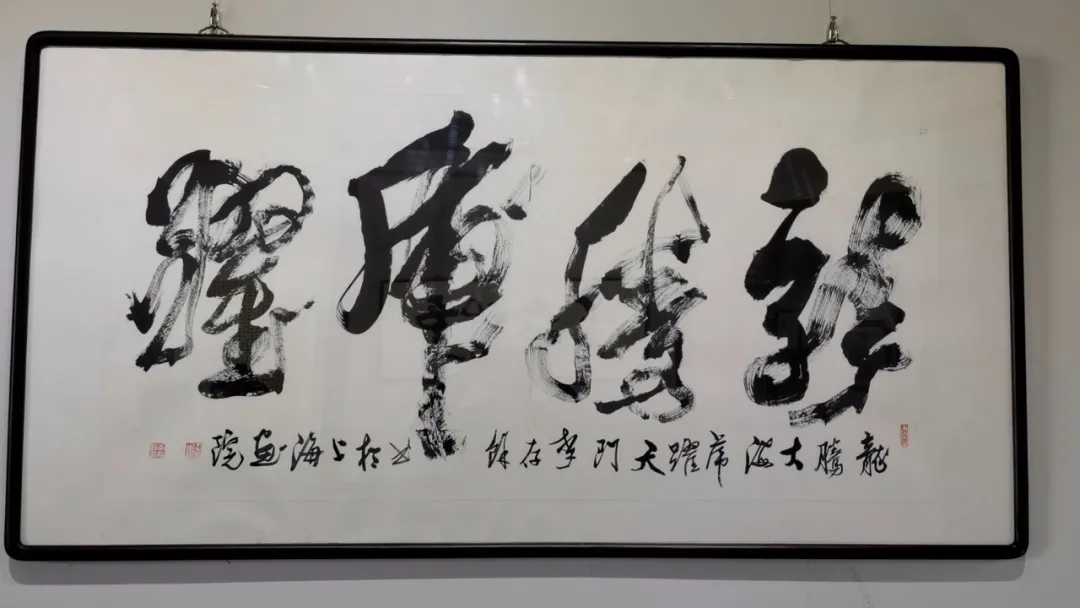 龍騰虎躍
龍騰大海虎躍天門李存餘書於上海畫院